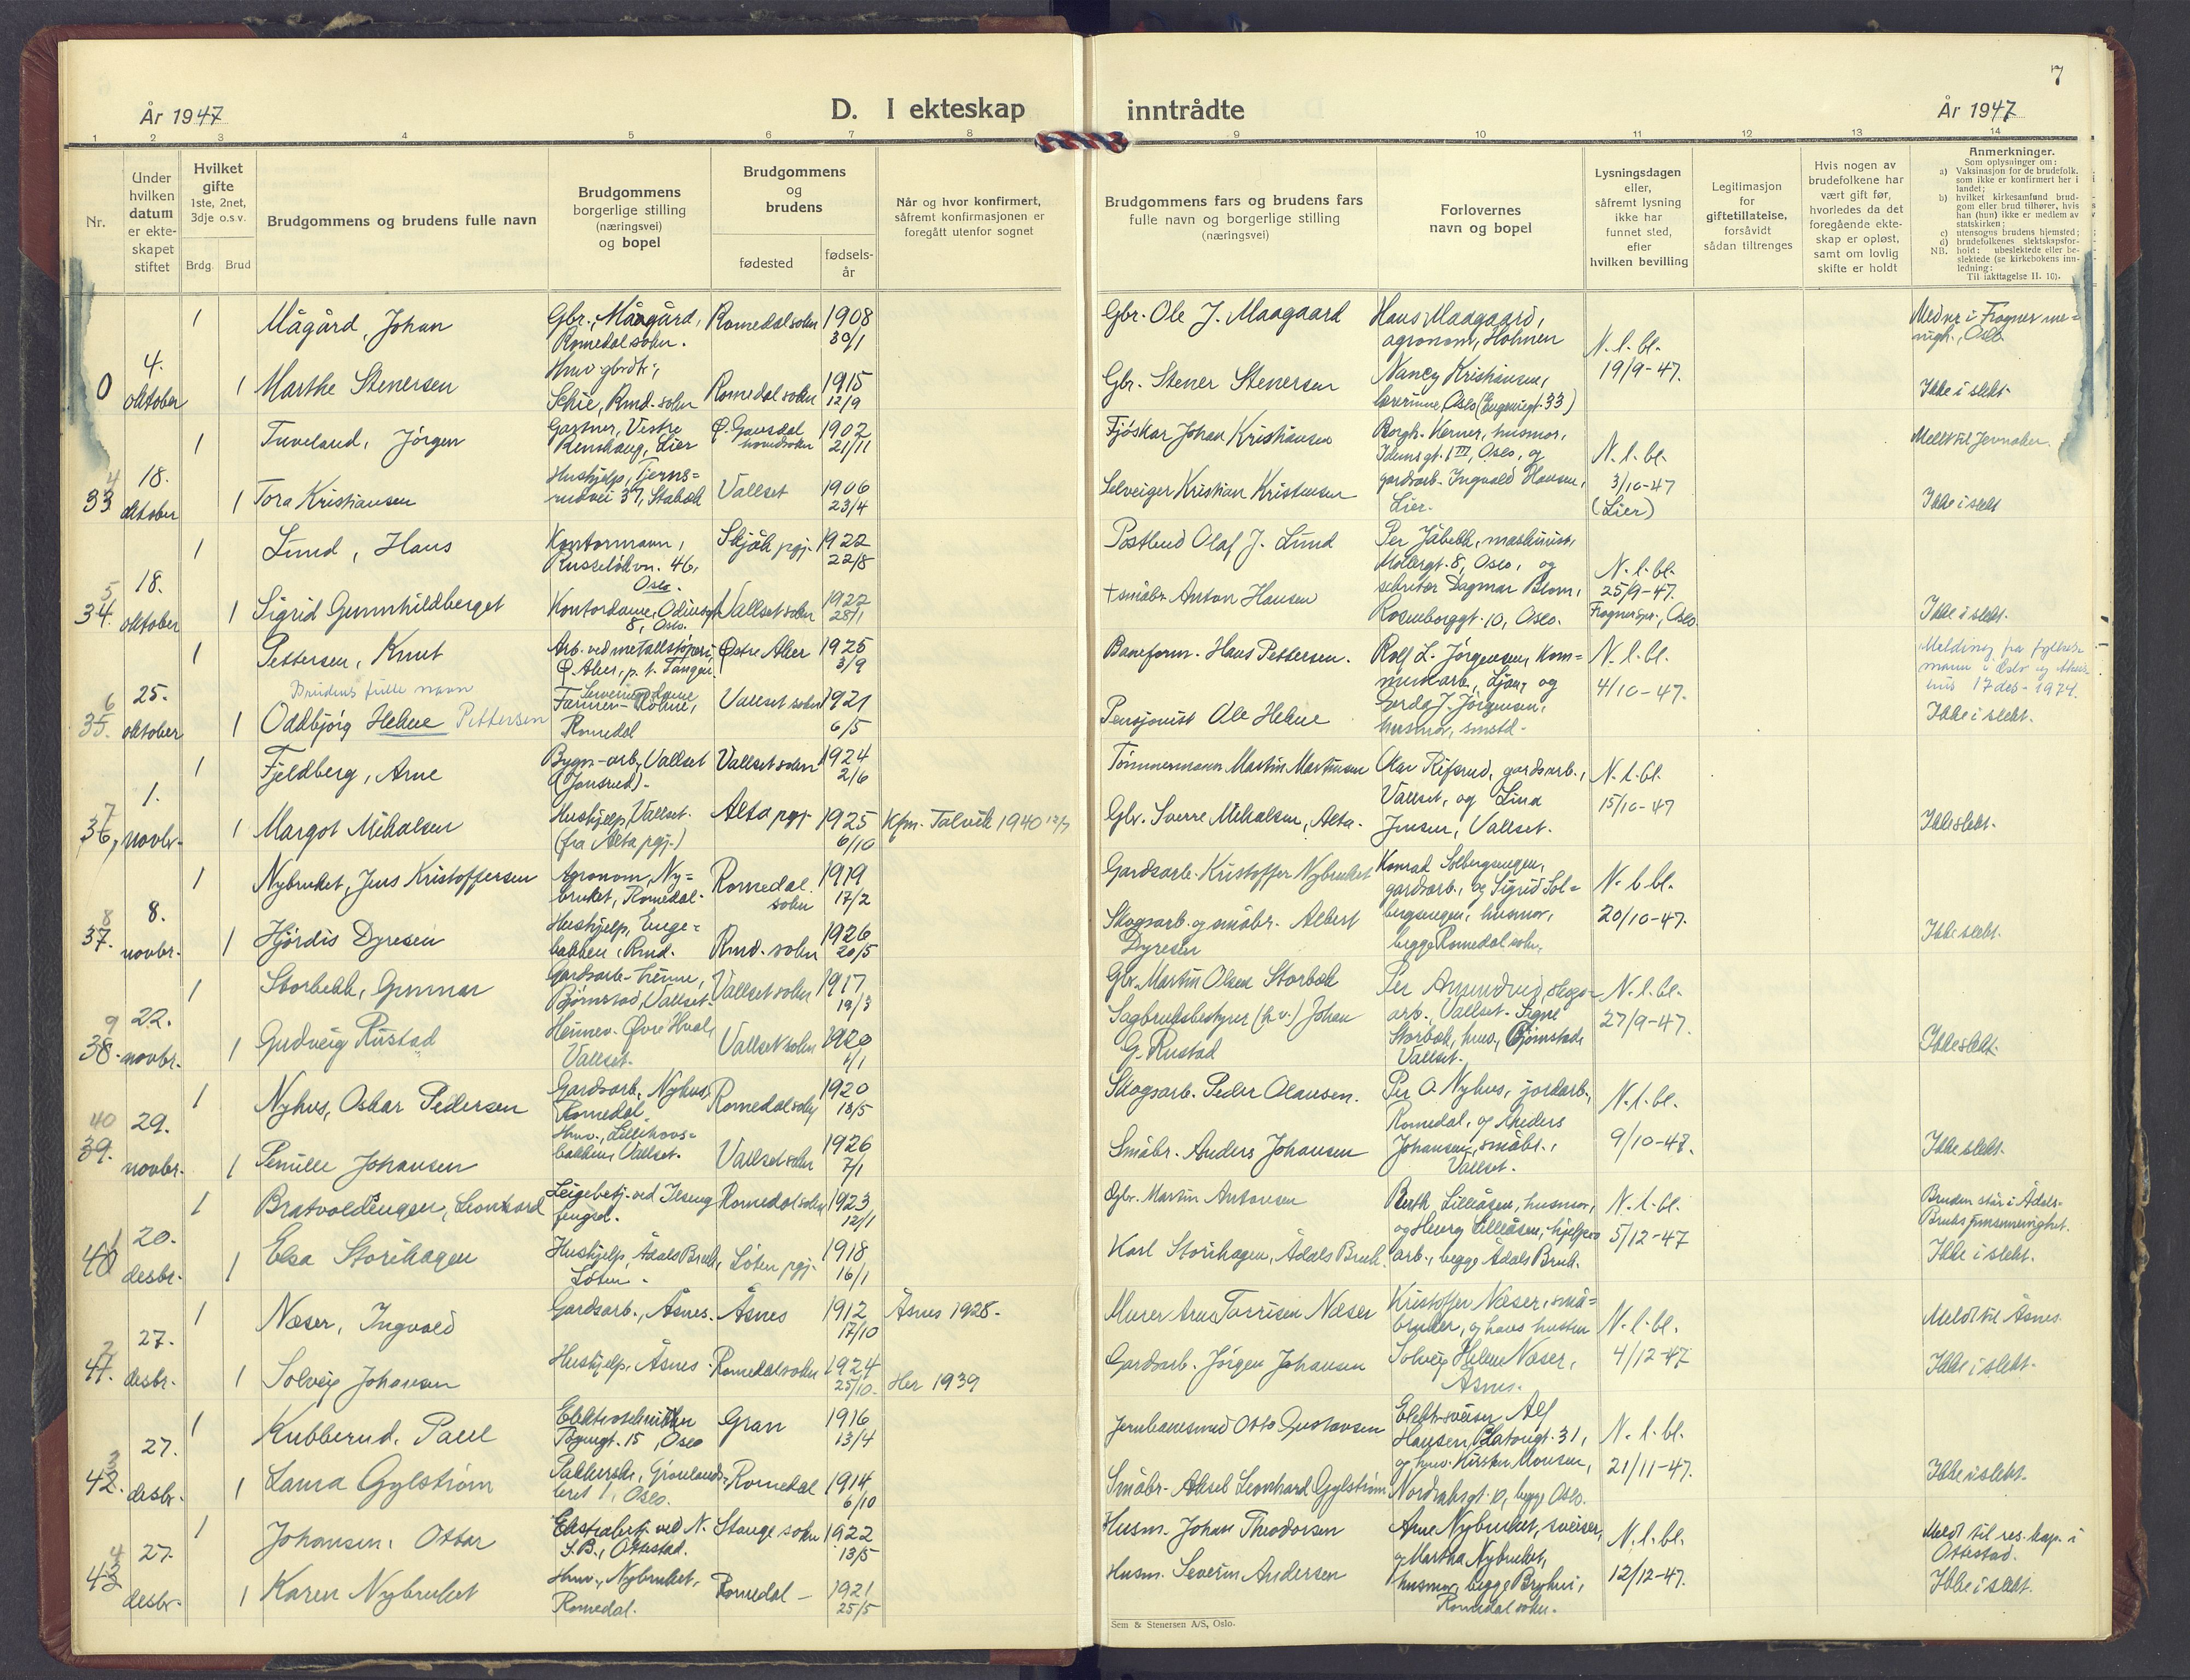 7
År 1947
D. I ekteskap
inntrådte
År 1947
1 2 3 4 5 6 7 8 9 10 11 12 13 14
Nr.
Under
hvilken
datum
er ekte-
skapet
stiftet
Hvilket
gifte
1ste, 2net,
3dje o.s.v.
Brdg. Brud
Brudgommens og brudens fulle navn
Brudgommens
borgerlige stilling
(næringsvei)
og bopel
Brudgommens
og
brudens
fødested
fødsels-
år
Når og hvor konfirmert,
såfremt konfirmasjonen er
foregått utenfor sognet
Brudgommens fars og brudens fars
fulle navn og borgerlige stilling
(næringsvei)
Forlovernes
navn og bopel
Lysningsdagen
eller,
såfremt lysning
ikke har
funnet sted,
efter
hvilken bevilling
Legitimasjon
for
giftetillatelse,
forsåvidt
sådan tiltrenges
Hvis nogen av
brudefolkene har
vært gift før,
hvorledes da det
foregående ekte-
skap er opløst,
samt om lovlig
skifte er holdt
Anmerkninger.
Som oplysninger om:
a) Vaksinasjon for de brudefolk.
som ikke er konfirmert her i
landet;
b) hvilket kirkesamfund brud-
gom eller brud tilhører, hvis
han (hun) ikke er medlem av
statskirken;
c) utensogns brudens hjemsted;
d) brudefolkenes slektskapsfor-
hold: ubeslektede eller be-
slektede (se kirkebokens inn-
ledning:
NB.
Til iakttagelse II. 10).
0 4. oktober
1 Mågård, Johan
Gbr., Mågård,
Romedal sokn.
Romedal sokn 1908
30/1
Gbr. Ole J. Maagaard
Hans Maagaard,
agronom, Holmen
N. l. bl.
19/9-47.
1 Marthe Stenersen
Skie, Rmd. sokn
Romedal sokn 1915
12/9
Gbr. Stener Stenersen
Nancy Kristiansen,
lærerinne, Oslo (Eugeniegt. 33)
Ikke i slekt
33 4 18. oktober
1 Tuveland, Jörgen
Gartner, Vestre
Renskaug, Lier
Ø. Gausdal
hovedsokn
1902
21/11
Fjöskar Johan Kristiansen
Borgh. Kerner, husmor,
Idunsgt. 1 III, Oslo, og
gardsarb. Ingvald Hansen,
Lier.
N. l. bl.
3/10-47
(Lier)
Meldt til Jevnaker.
1 Tora Kristiansen
Hushjelp, Tjerns-
rudvei 37, Stabæk
Vallset 1906
23/4
Selveiger Kristian Kristensen
Ikke i slekt
34. 5 18. oktober
1 Lund, Hans
Kontormann,
Russeløkvn. 46,
Oslo.
Skjåk pgj. 1922
22/8
Postbud Olaf J. Lund
Per Jåbekk, maskinist,
Möllergt. 8, Oslo, og
sekretær Dagmar Blom,
Rosenborggt. 10, Oslo.
N. l. bl.
25/9-47.
Frogner spr., Oslo
1 Sigrid Gunnhildberget
Kontordame, Odinsgt.
8, Oslo.
Vallset sokn 1922
28/1
+ småbr. Anton Hansen
Ikke i slekt.
35. 6 25. oktober
1 Pettersen, Knut
Arb. ved metallstøperi,
Ø. Aker, p.t. Tangen
Østre Aker 1925
3/9
Baneform. Hans Pettersen.
Rolf L. Jörgensen, kom-
munearb., Ljan, og
Gerda J. Jörgensen,
husmor, smstd.
N. l. bl.
4/10-47.
Melding fra fylkes-
mann i Oslo og Akers-
hus 17 des- 1974.
Brudens fulle navn
1 Oddbjörg Helme Pettersen
Romedal
Vallset sokn 1921
6/5
Pensjonist Ole Helme
Ikke i slekt.
36, 7 1. novbr.
1 Fjeldberg, Arne
Bygn.-arb., Vallset
(Jonsrud).
Vallset sokn 1924
2/6
Tömmermann Martin Martinsen
Olav Rifsrud, gardsarb.,
Vallset, og Lina
Jensen, Vallset.
N. l. bl.
15/10-47
1 Margot Mikalsen
Hushjelp, Vallset.
(fra Alta pgj.)
Alta pgj. 1925
6/10
Kfm. Talvik 1940
Gbr. Sverre Mikalsen, Alta.
Ikke slekt.
37. 8 8. novbr.
1 Nybruket, Jens Kristoffersen
Agronom, Ny-
bruket, Romedal.
Romedal
sokn
1919
17/2
Gardsarb. Kristoffer Nybruket
Konrad Solbergsengen,
gardsarb., og Sigrid Sol-
bergsengen, husmor,
begge Romedal sokn.
N. l. bl.
20/10-47.
1 Hjördis Dyresen
Hushjelp, Enge-
bakken, Rmd.
Rmd. sokn 1926
20/5
Skogsarb. og småbr. Albert
Dyresen
Ikke slekt.
38. 9 22. novbr.
1 Storbekk, Gunnar
Björnstad, Vallset.
Vallset sokn 1917
19/3
Gbr. Martin Olsen Storbek
Per Amundrud, skogs-
arb., Vallset. Signe
Storbæk, husv., Björnstad,
Vallset.
N. l. bl.
27/9-47.
1 Gudveig Rustad
Heimev. Øvre Hval,
Vallset.
Vallset sokn 1920
4/1
Sagbruksbestyrer (h.v.) Johan
G. Rustad
Ikke slekt.
39. 40 29. novbr.
1 Nyhus, Oskar Pedersen
Gardsarb., Nyhus,
Romedal
Romedal sokn 1920
18/5
Skogsarb. Peder Olausen.
Per O. Nyhus, jordarb.,
Romedal, og Anders
Johansen, småbr.,
Vallset.
N. l. bl.
9/10-47.
1 Pernille Johansen
Hmv., Lillehovs-
bakken, Vallset.
Vallset sokn 1926
7/1
Småbr. Anders Johansen
Ikke slekt.
40 1 20. desbr.
1 Bratvoldengen, Leonhard
Leigebetj. ved Ilseng
fengsel.
Romedal sokn 1923
12/1
Gbr. Martin Antonsen
Ruth Lilleåsen, husmor,
og Georg Lilleåsen, hjelpe-
arb., begge Ådals Bruk.
N. l. bl.
5/12-47
Bruden står i Ådals-
Bruks frimenighet.
1 Elsa Storihagen
Hushjelp, Ådals Bruk,
Löten.
Löten pgj. 1918
16/1
Karl Storihagen, Ådals Bruk.
Ikke i slekt.
41. 2 27. desbr.
1 Næser, Ingvald
Gardsarb., Åsnes.
Åsnes 1912
17/10
Åsnes 1928.
Murer Arne Torrisen Næser
Kristoffer Næser, små-
bruker, og hans hustru
Solveig Helene Næser,
Åsnes.
N. l. bl.
4/12-47
Meldt til Åsnes.
1 Solveig Johansen
Hushjelp, Åsnes.
Romedal sokn 1924
25/10.
Her 1939
Gardsarb. Jörgen Johansen
Ikke i slekt.
42. 3 27. desbr.
1 Kubberud, Paul
Gran 1916
13/4
Jernbanesmed Otto Gustavsen
Elektrosveiser Alf
Hansen, Platougt. 31,
og hmv. Kirsten Monsen,
begge Oslo.
N. l. bl.
21/11-47.
1 Laura Gylström
Pakkerske, Grønlands-
leret 1, Oslo.
Romedal 1914
6/10
Småbr. Aksel Leonhard Gylström
Ikke i slekt.
43 4 27. desbr.
1 Johansen, Ottar
Ekstrabetj. ved N.
S.B., Ottestad.
Stange sokn 1922
13/5
Husm. Johan Theodorsen
Arne Nybruket, sveiser,
og Martha Nybruket,
husmor, begge Bryhni,
Romedal sokn.
N. l. bl.
12/12-47.
Meldt til res. kap. i
Ottestad.
1 Karen Nybruket
Hmv., Nybruket,
Romedal.
Romedal 1921
25/5
Husm. Severin Andersen
Ikke i slekt.
Sem & Stenersen A/S, Oslo.